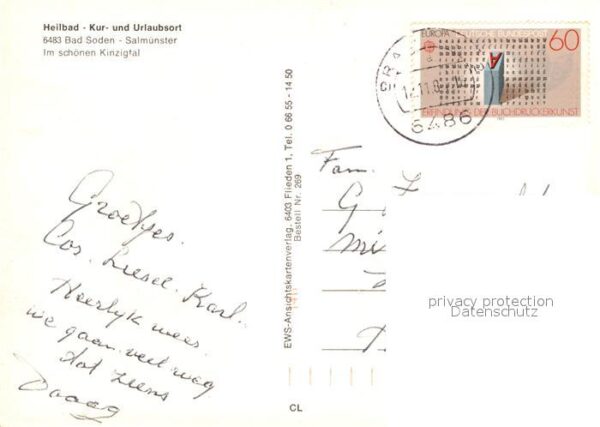 Heilbad - Kur- und Urlaubsort
6483 Bad Soden - Salmünster
Im schönen Kinzigtal
EUROPA DEUTSCHE BUNDESPOST 60
ERFINDUNG DER BUCHDRUCKERKUNST
6486
EWS-Ansichtskartenverlag, 6403 Flieden 1, Tel. 0 66 55 - 14 50
Bestell Nr. 269
Groetjes.
Cor. Liesel. Karl.
Heerlijk weer.
we gaan veel weg
tot ziens
Daaag
Fam.
privacy protection
Datenschutz
CL